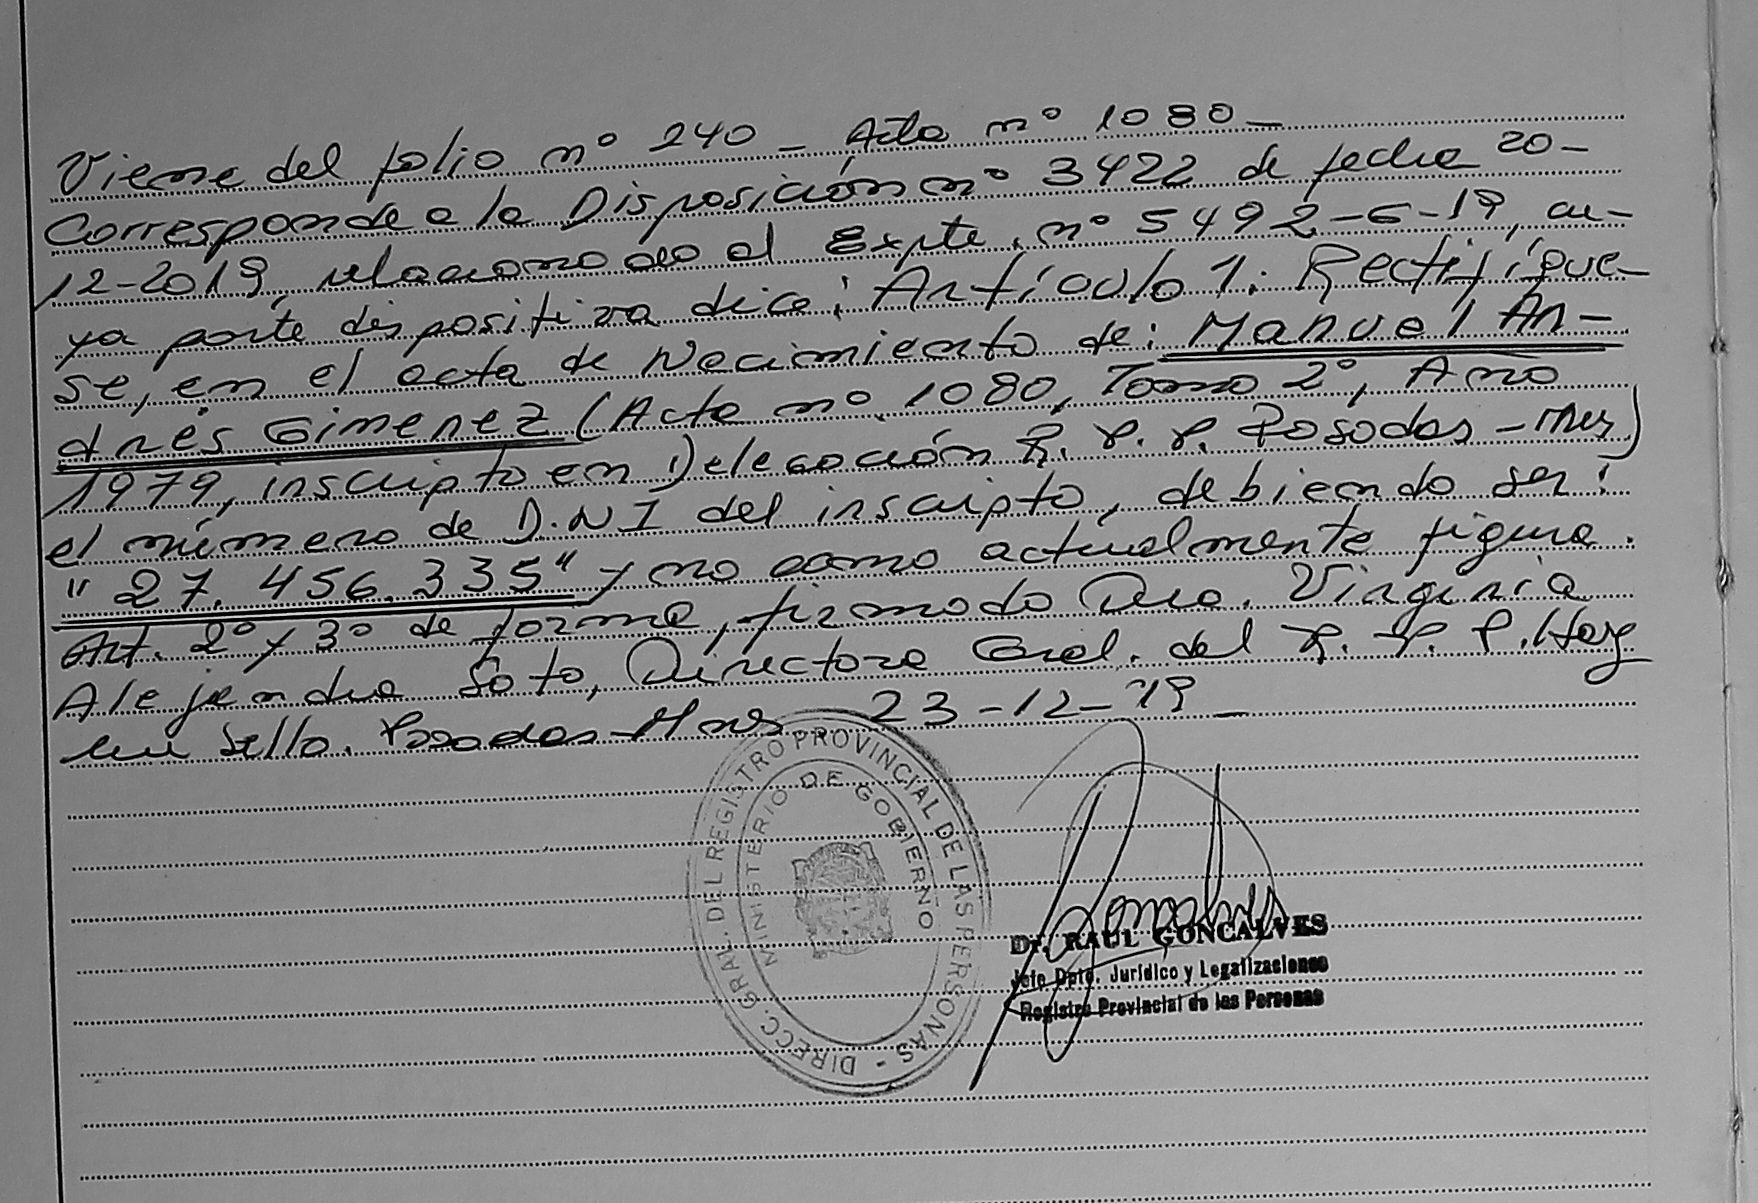 Viene del folio nº 240 - Acta nº 1080 -
Corresponde a la Disposición nº 3422 de fecha 20-
12-2019, relacionado al Expte. nº 5492-6-19, cu-
ya parte dispositiva dice: Artículo 1: Rectifíque-
se, en el acta de Nacimiento de: Manuel An-
drés Gimenez (Acta nº 1080, Tomo 2º, Año
1979, inscripto en Delegación R. P. P. Posadas - Mnes)
el número de D.N.I del inscripto, debiendo ser:
"27.456.335" y no como actualmente figura.
Art. 2º y 3º de forma, firmado Dra. Virginia
Alejandra Soto, Directora Gral. del R. P. P. Hay
un sello. Posadas Mnes 23-12-19-
DIRECC. GRAL. DEL REGISTRO PROVINCIAL DE LAS PERSONAS -
MINISTERIO DE GOBIERNO
Dr. RAUL GONCALVES
Jefe Dpto. Jurídico y Legalizaciones
Registro Provincial de las Personas